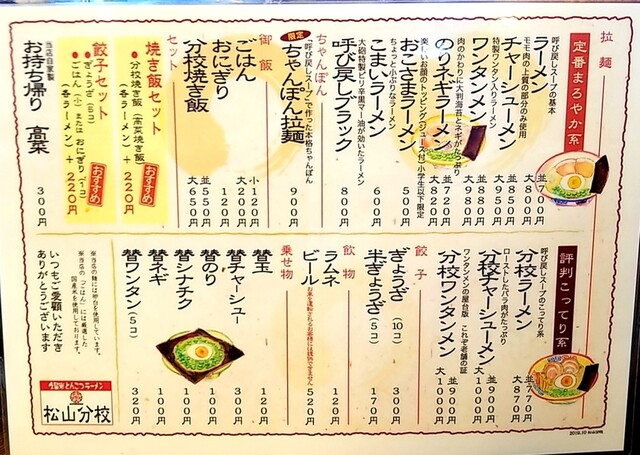 拉麺
定番まろやか系
ラーメン
呼び戻しスープの基本
並 700円
大 800円
チャーシューメン
モモ肉の上質の部分のみ使用
並 850円
ワンタンメン
特製ワンタン入りラーメン
並 880円
大 980円
のりネギラーメン
肉のかわりに大判海苔とネギがたっぷり
並 720円
大 820円
おこさまラーメン
楽しいお顔のトッピング(ジュース付)小学生以下限定
500円
こまいラーメン
ちょっと小ぶりなラーメン
600円
呼び戻しブラック
大砲特製ピリ辛黒マー油が効いたラーメン
800円
ちゃんぽん
限定
ちゃんぽん拉麺
「呼び戻しスープ」で作った本格ちゃんぽん
900円
御飯
ごはん
小 120円
大 200円
おにぎり
120円
分校焼き飯
並 550円
大 650円
セット
焼き飯セット
・分校焼き飯(高菜焼き飯)
(各ラーメン)+220円
おすすめ
餃子セット
・ぎょうざ(5コ)
・ごはん(小)またはおにぎり(1コ)
(各ラーメン)+220円
おすすめ
当店自家製
お持ち帰り 高菜
300円
評判こってり系
分校ラーメン
呼び戻しスープのこってり系
並 770円
大 870円
分校チャーシューメン
ローストしたバラ肉がたっぷり
並 900円
大 1000円
分校ワンタンメン
ワンタンメンの屋台版 これぞ老舗の証
並 900円
大 1000円
餃子
ぎょうざ(10コ)
300円
半ぎょうざ(5コ)
170円
飲物
ラムネ
120円
ビール
お車を運転されるお客様には提供できません
520円
乗せ物
替玉
120円
替チャーシュー
300円
替のり
100円
替シナチク
100円
替ネギ
100円
替ワンタン(5コ)
320円
※当店の麺には卵白を使用しています。
※当店の「ごはん」には厳選した
国産米を使用しております。
いつもご愛顧いただき
ありがとうございます
久留米とんこつラーメン
松山分校
2019.10